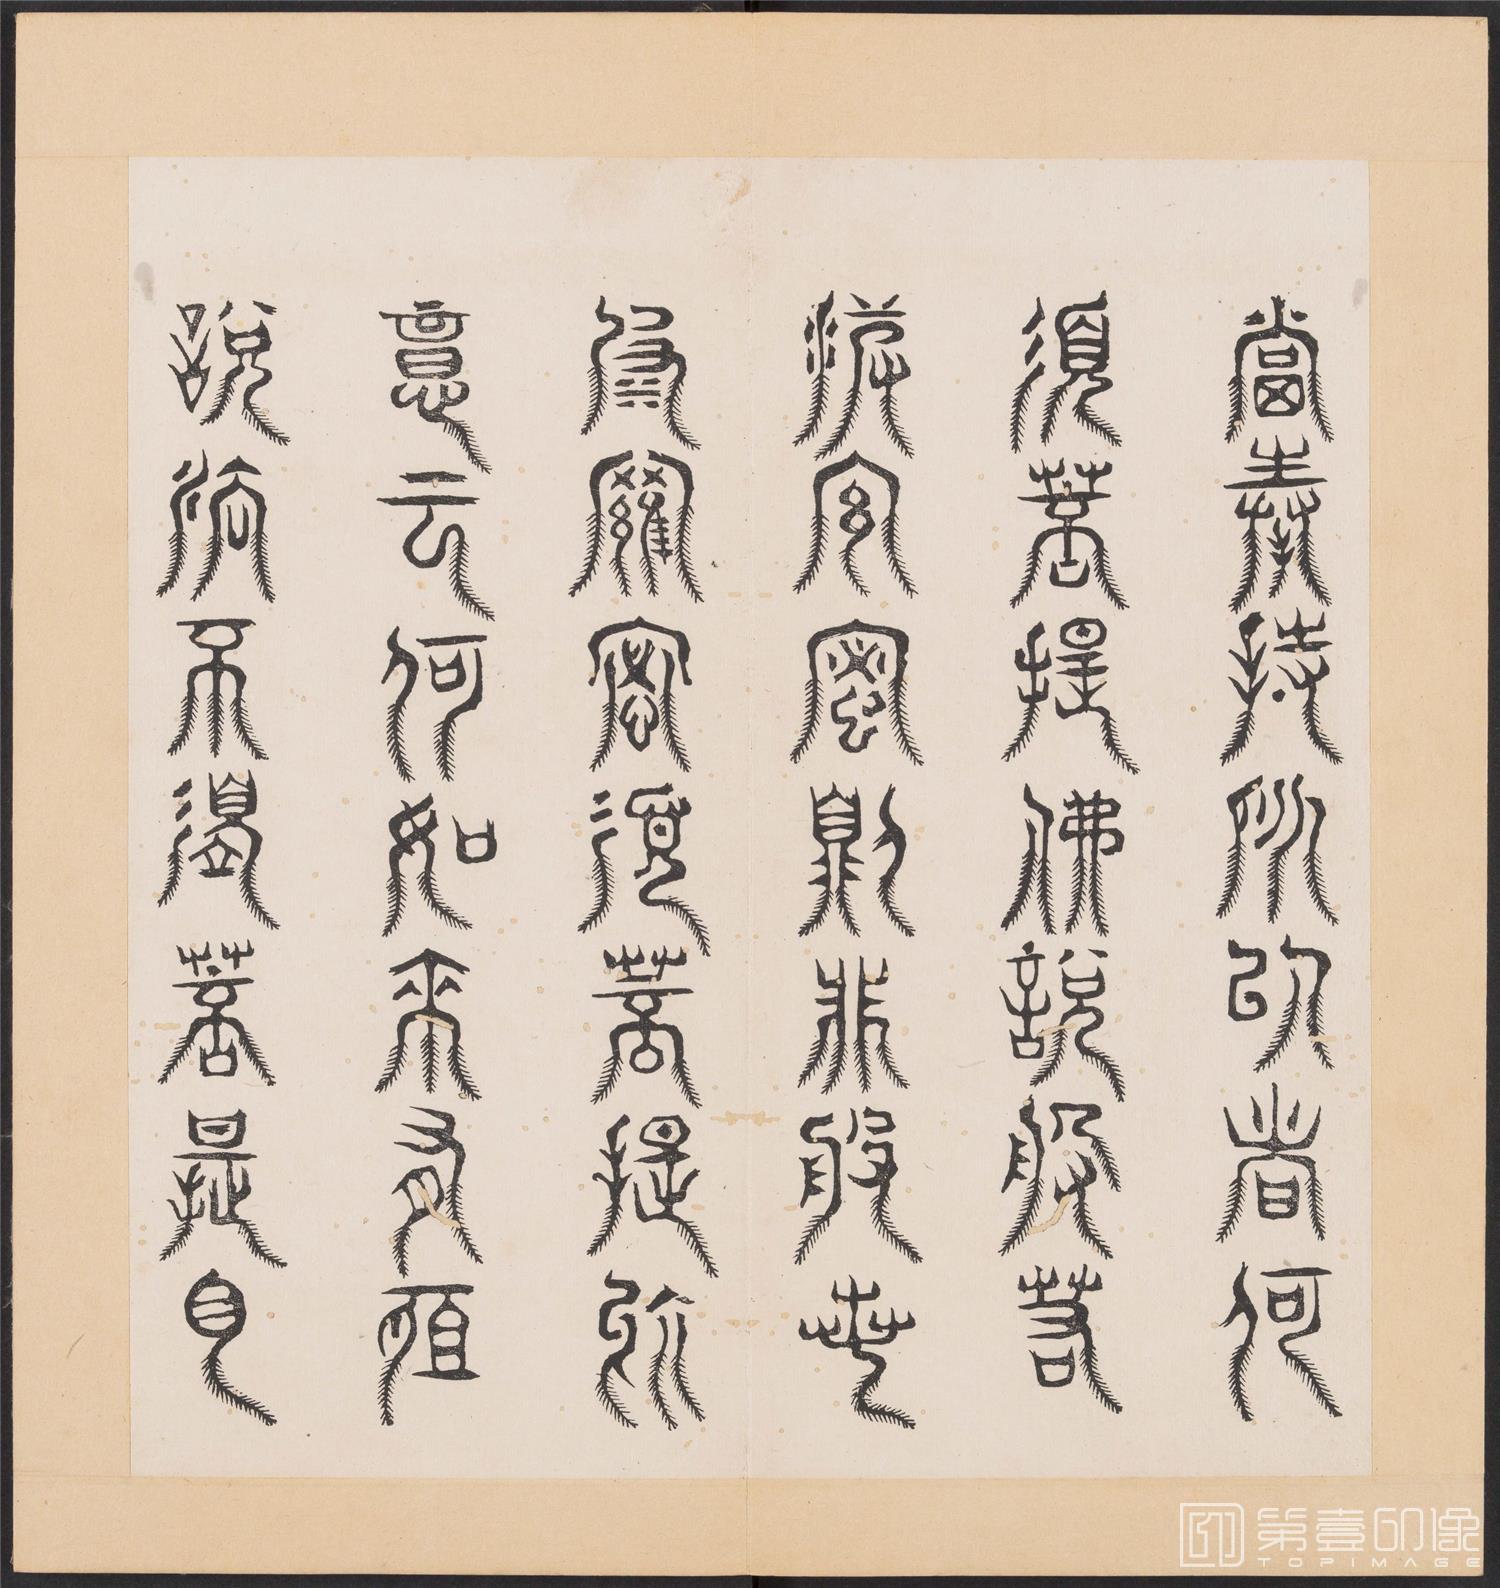 當奉持所以者何
須菩提佛說般若
波羅蜜則非般若
波羅蜜須菩提於
意云何如來有所
說法不須菩提白
第壹印像
TOPIMAGE